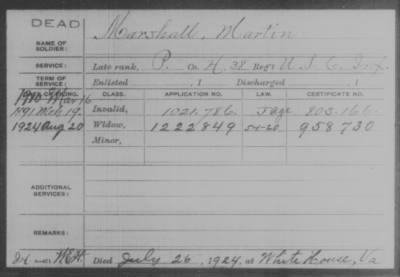 DEAD
NAME OF SOLDIER: Marshall, Martin
SERVICE: Late rank, P. Co. H, 38 Reg't U.S.C. Inf.
TERM OF SERVICE: Enlisted , 1 Discharged , 1
DATE OF FILING. CLASS. APPLICATION NO. LAW. CERTIFICATE NO.
1910 Mar 16
1891 19. Invalid, 1021.786 803.166
1924 Aug 20 Widow, 1222849 958730
Minor,
ADDITIONAL SERVICES:
REMARKS:
Died July 26, 1924, at White House, Va